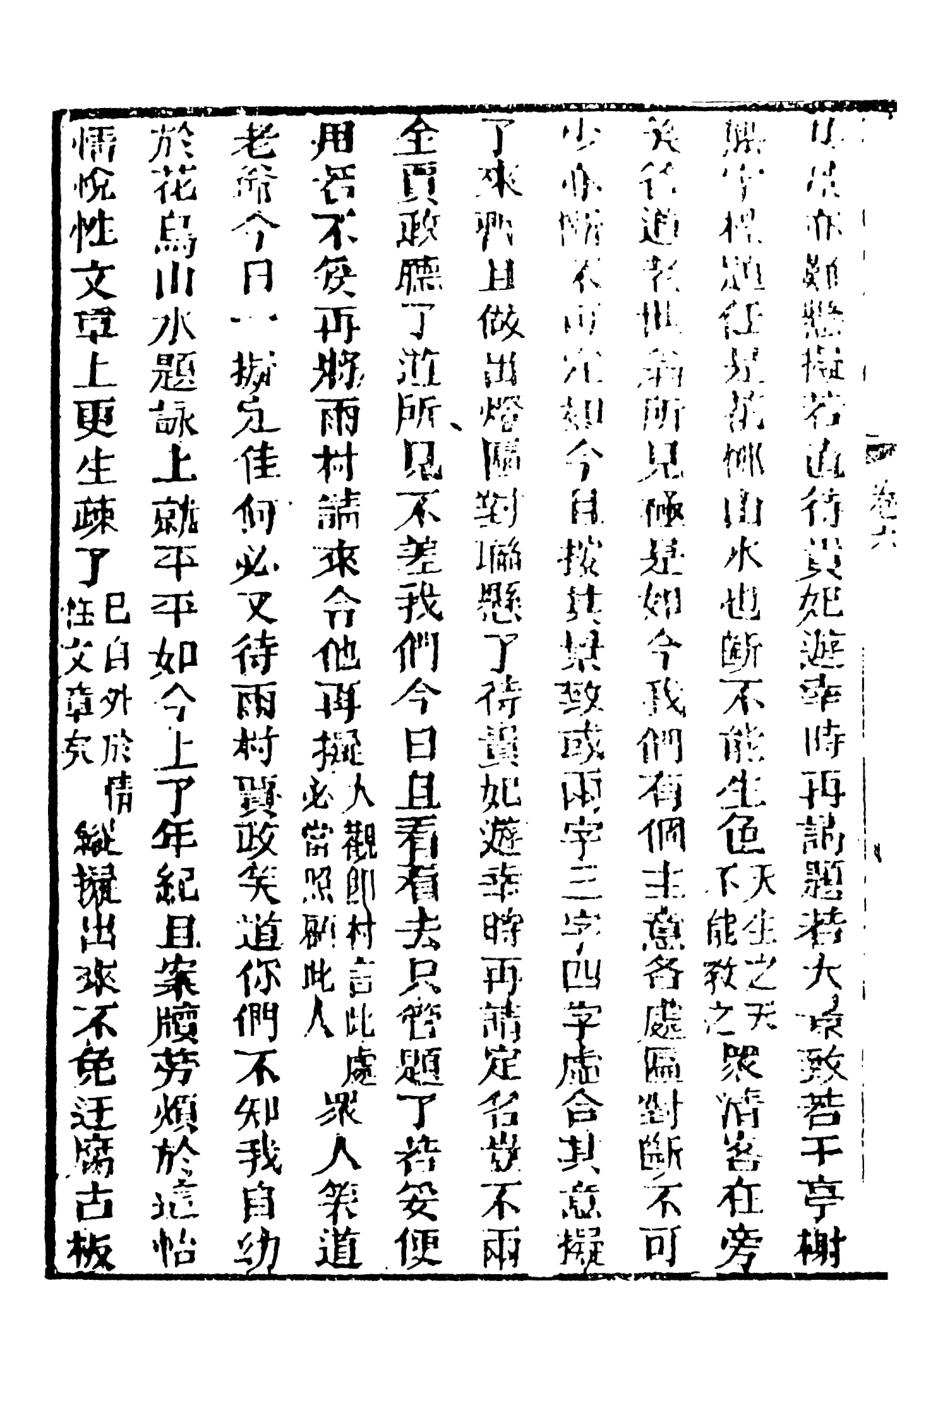 卷六
景亦難懸擬若直待貴妃遊幸時再請題若大景致若干亭榭
無字標題任是花柳山水也斷不能生色天生之天不能致之眾清客在旁
笑答道老世翁所見極是如今我們有個主意各處匾對斷不可
少亦斷不可定如今且按其景致或兩字三字四字虛合其意擬
了來暫且做出燈匾對聯懸了待貴妃遊幸時再請定名豈不兩
全賈政聽了道所見不差我們今日且看看去只管題了若妥便
用若不妥再將雨村請來令他再擬人觀卽村言此處必當照顧此人眾人笑道
老爺今日一擬定佳何必又待雨村賈政笑道你們不知我自幼
於花鳥山水題詠上就平平如今上了年紀且案牘勞煩於這怡
情悅性文章上更生疎了已自外於情性文章矣縱擬出來不免迂腐古板